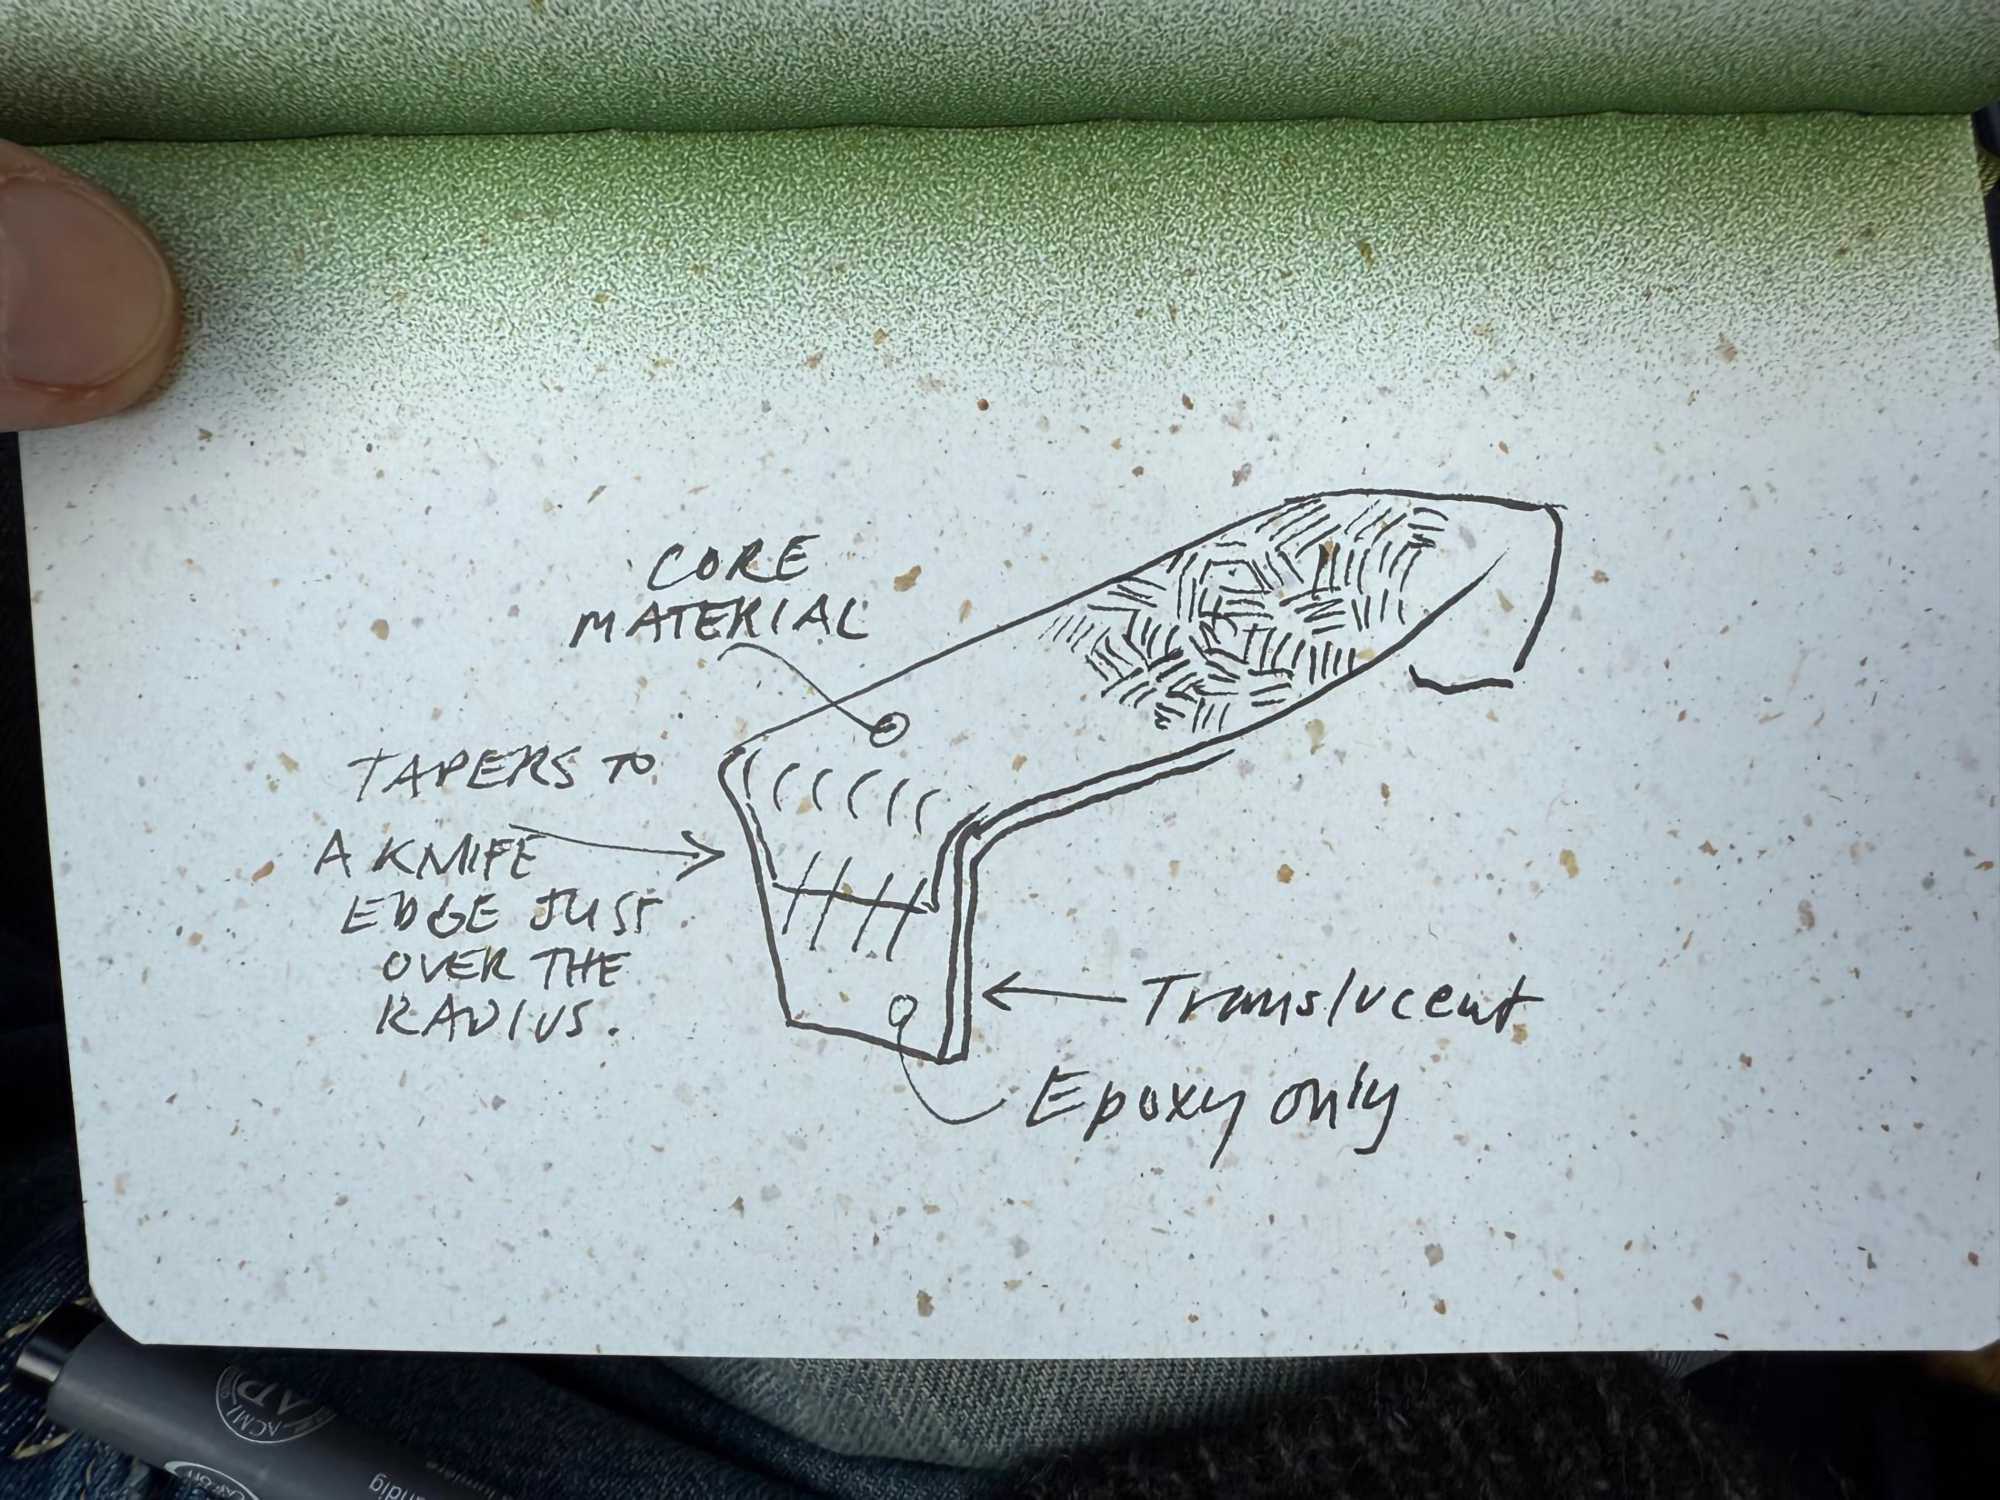 CORE
MATERIAL
TAPERS TO
A KNIFE
EDGE JUST
OVER THE
RADIUS.
Translucent
Epoxy only